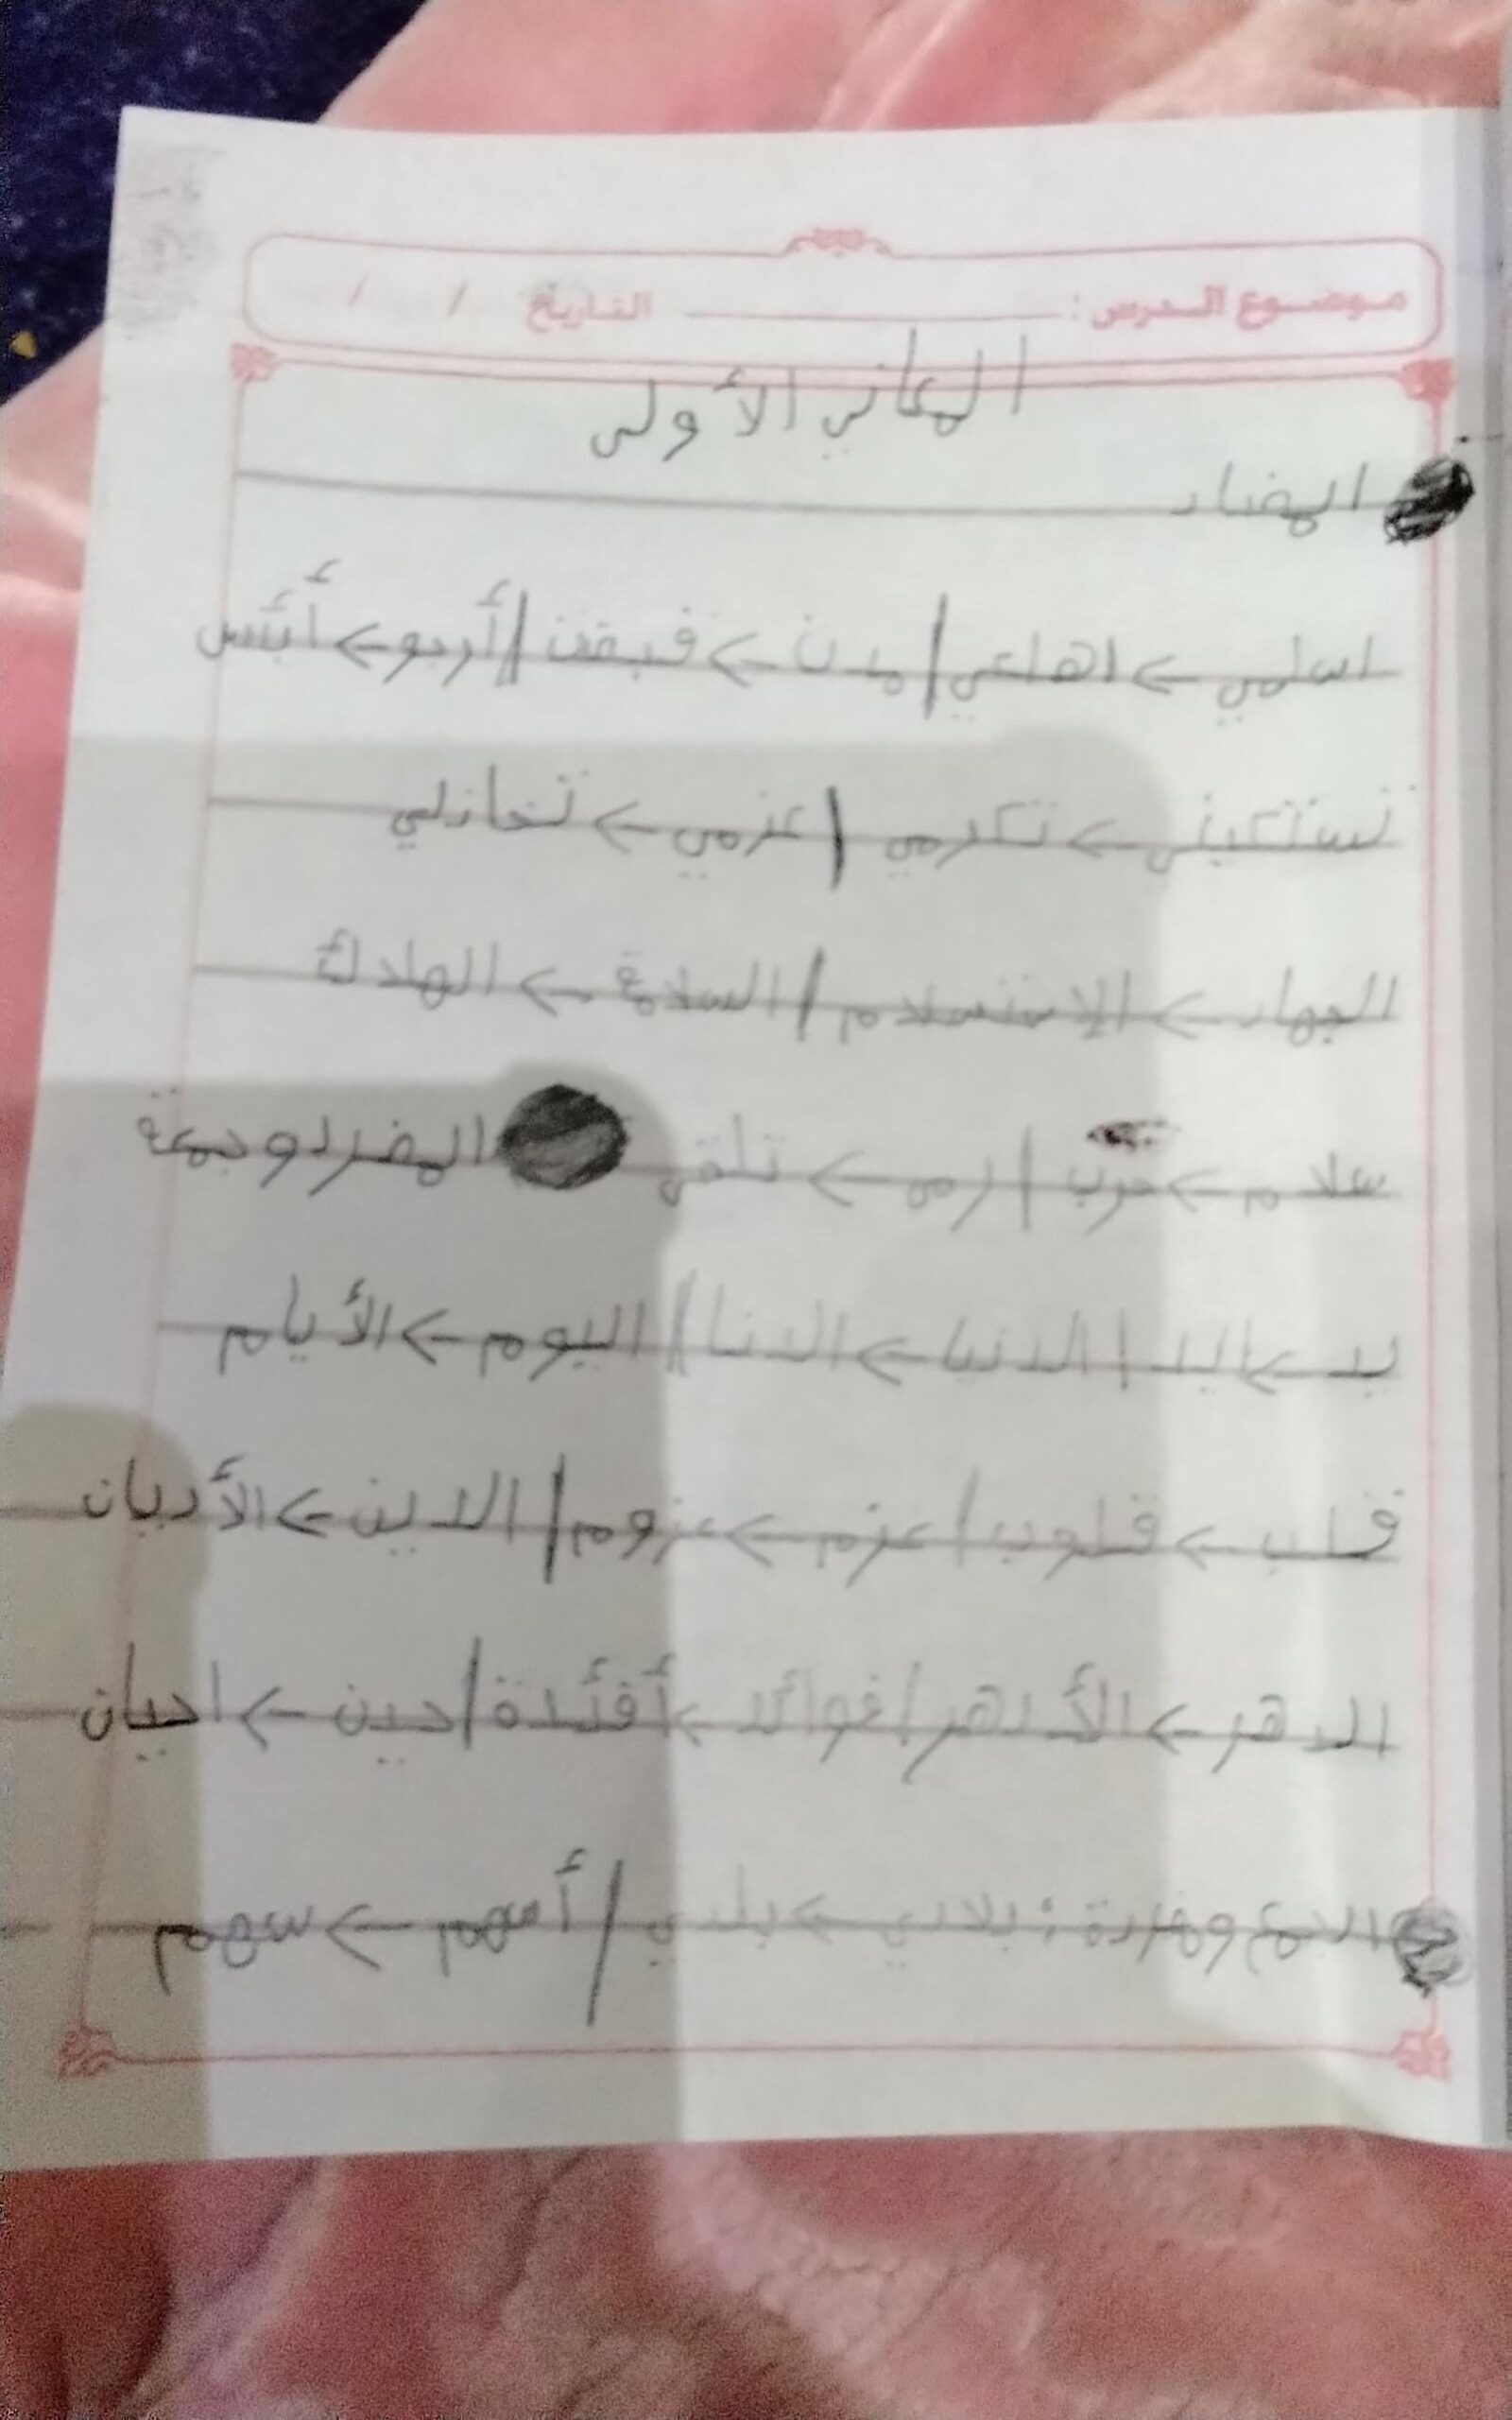 موضوع الدرس : التاريخ / /
المعاني الأولى
المضاد
اسلمي > اهلعي / مدن > / أرجو > أيئس
تستكيني > تكرمي / عزمي > تخاذلي
الجهاد > الإستسلام / السلامة > الهلاك
سلام > حرب / رمى > تلقى المفرد وجمعة
يد > اليد / الدنيا > الدنا / اليوم > الأيام
قلب > قلوب / عزم > عزوم / الدين > الأديان
الدهر > الأدهر / فوائد > أفئدة / حين > احيان
الجمع ومفردة : بلادي > بلدي / أسهم > سهم